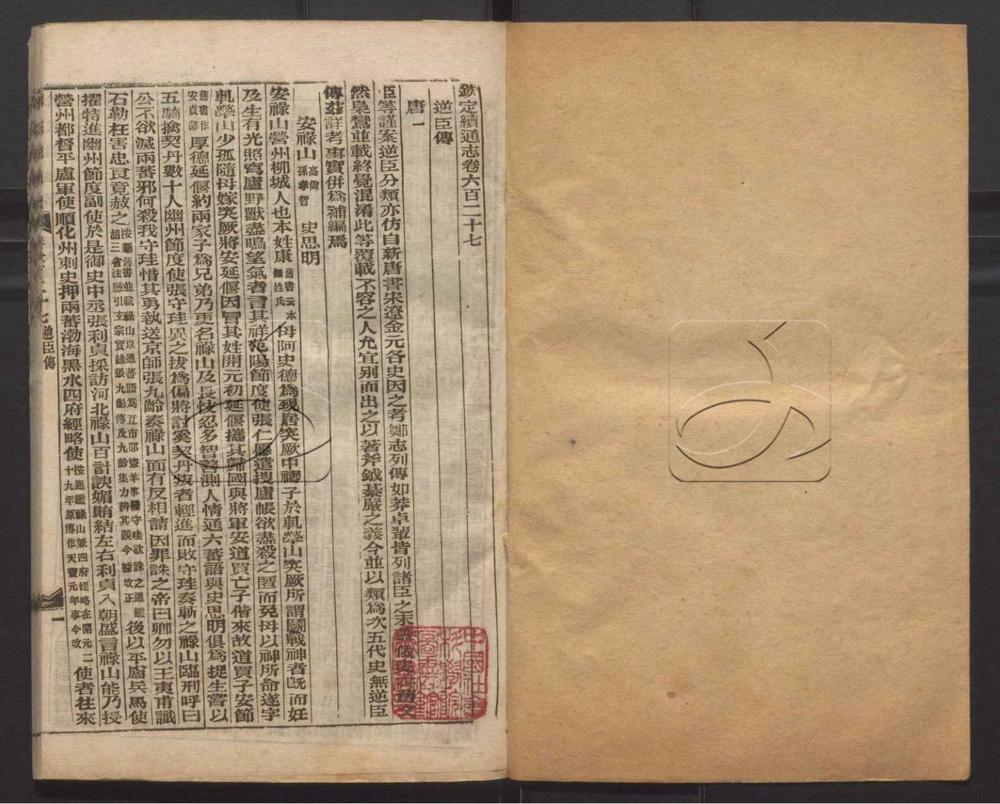 欽定續通志卷六百二十七
逆臣傳
唐一
臣等謹案逆臣分類亦仿自新唐書宋遼金元各史因之考鄭志列傳如莽卓輩皆列諸臣之末
然梟鸞並載終覺混淆此等覆載不容之人允宜别而出之以著斧鉞綦嚴之義今並以類爲次五代史無逆臣
傳茲詳考事實併爲補編焉
安祿山 高尚 孫孝哲 史思明
安祿山營州柳城人也本姓康 舊書云本無姓氏 母阿史德爲覡居突厥中禱子於軋犖山突厥所謂鬭戰神者旣而妊
及生有光照穹廬野獸盡鳴望氣者言其祥范陽節度使張仁愿遣搜廬帳欲盡殺之匿而免母以神所命遂字
軋犖山少孤隨母嫁突厥將安延偃因冒其姓開元初延偃攜其歸國與將軍安道買亡子偕來故道買子安節
舊書作安貞節 厚德延偃約兩家子爲兄弟乃更名祿山及長忮忍多智善測人情通六蕃語與史思明俱爲捉生嘗以
五騎擒契丹數十人幽州節度使張守珪異之拔爲偏將討奚契丹叛者輕進而敗守珪奏斬之祿山臨刑呼曰
公不欲滅兩蕃邪何殺我守珪惜其勇執送京師張九齡奏祿山面有反相請因罪誅之帝曰卿勿以王夷甫識
石勒枉害忠良竟赦之 後以平盧兵馬使
擢特進幽州節度副使於是御史中丞張利貞採訪河北祿山百計諛媚賄結左右利貞入朝盛言祿山能乃授
營州都督平盧軍使順化州刺史押兩蕃渤海黑水四府經略使 按通鑑祿山兼四府經略在開元二十九年原傳作天寶元年事今改 使者往來
逆臣傳
一